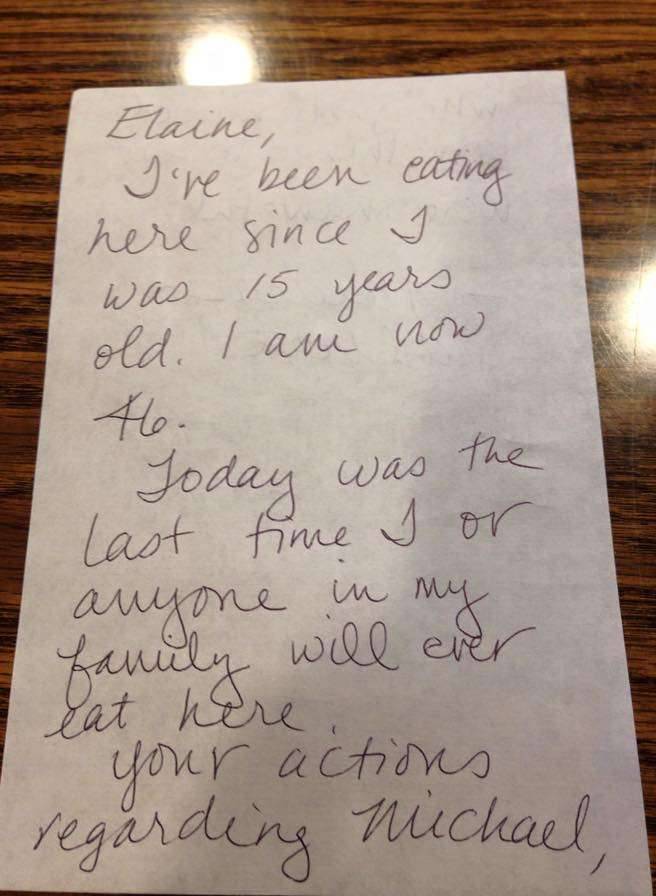 Elaine,
I've been eating
here since I
was 15 years
old. I am now
46.
Today was the
last time I or
anyone in my
family will ever
eat here.
your actions
regarding Michael,